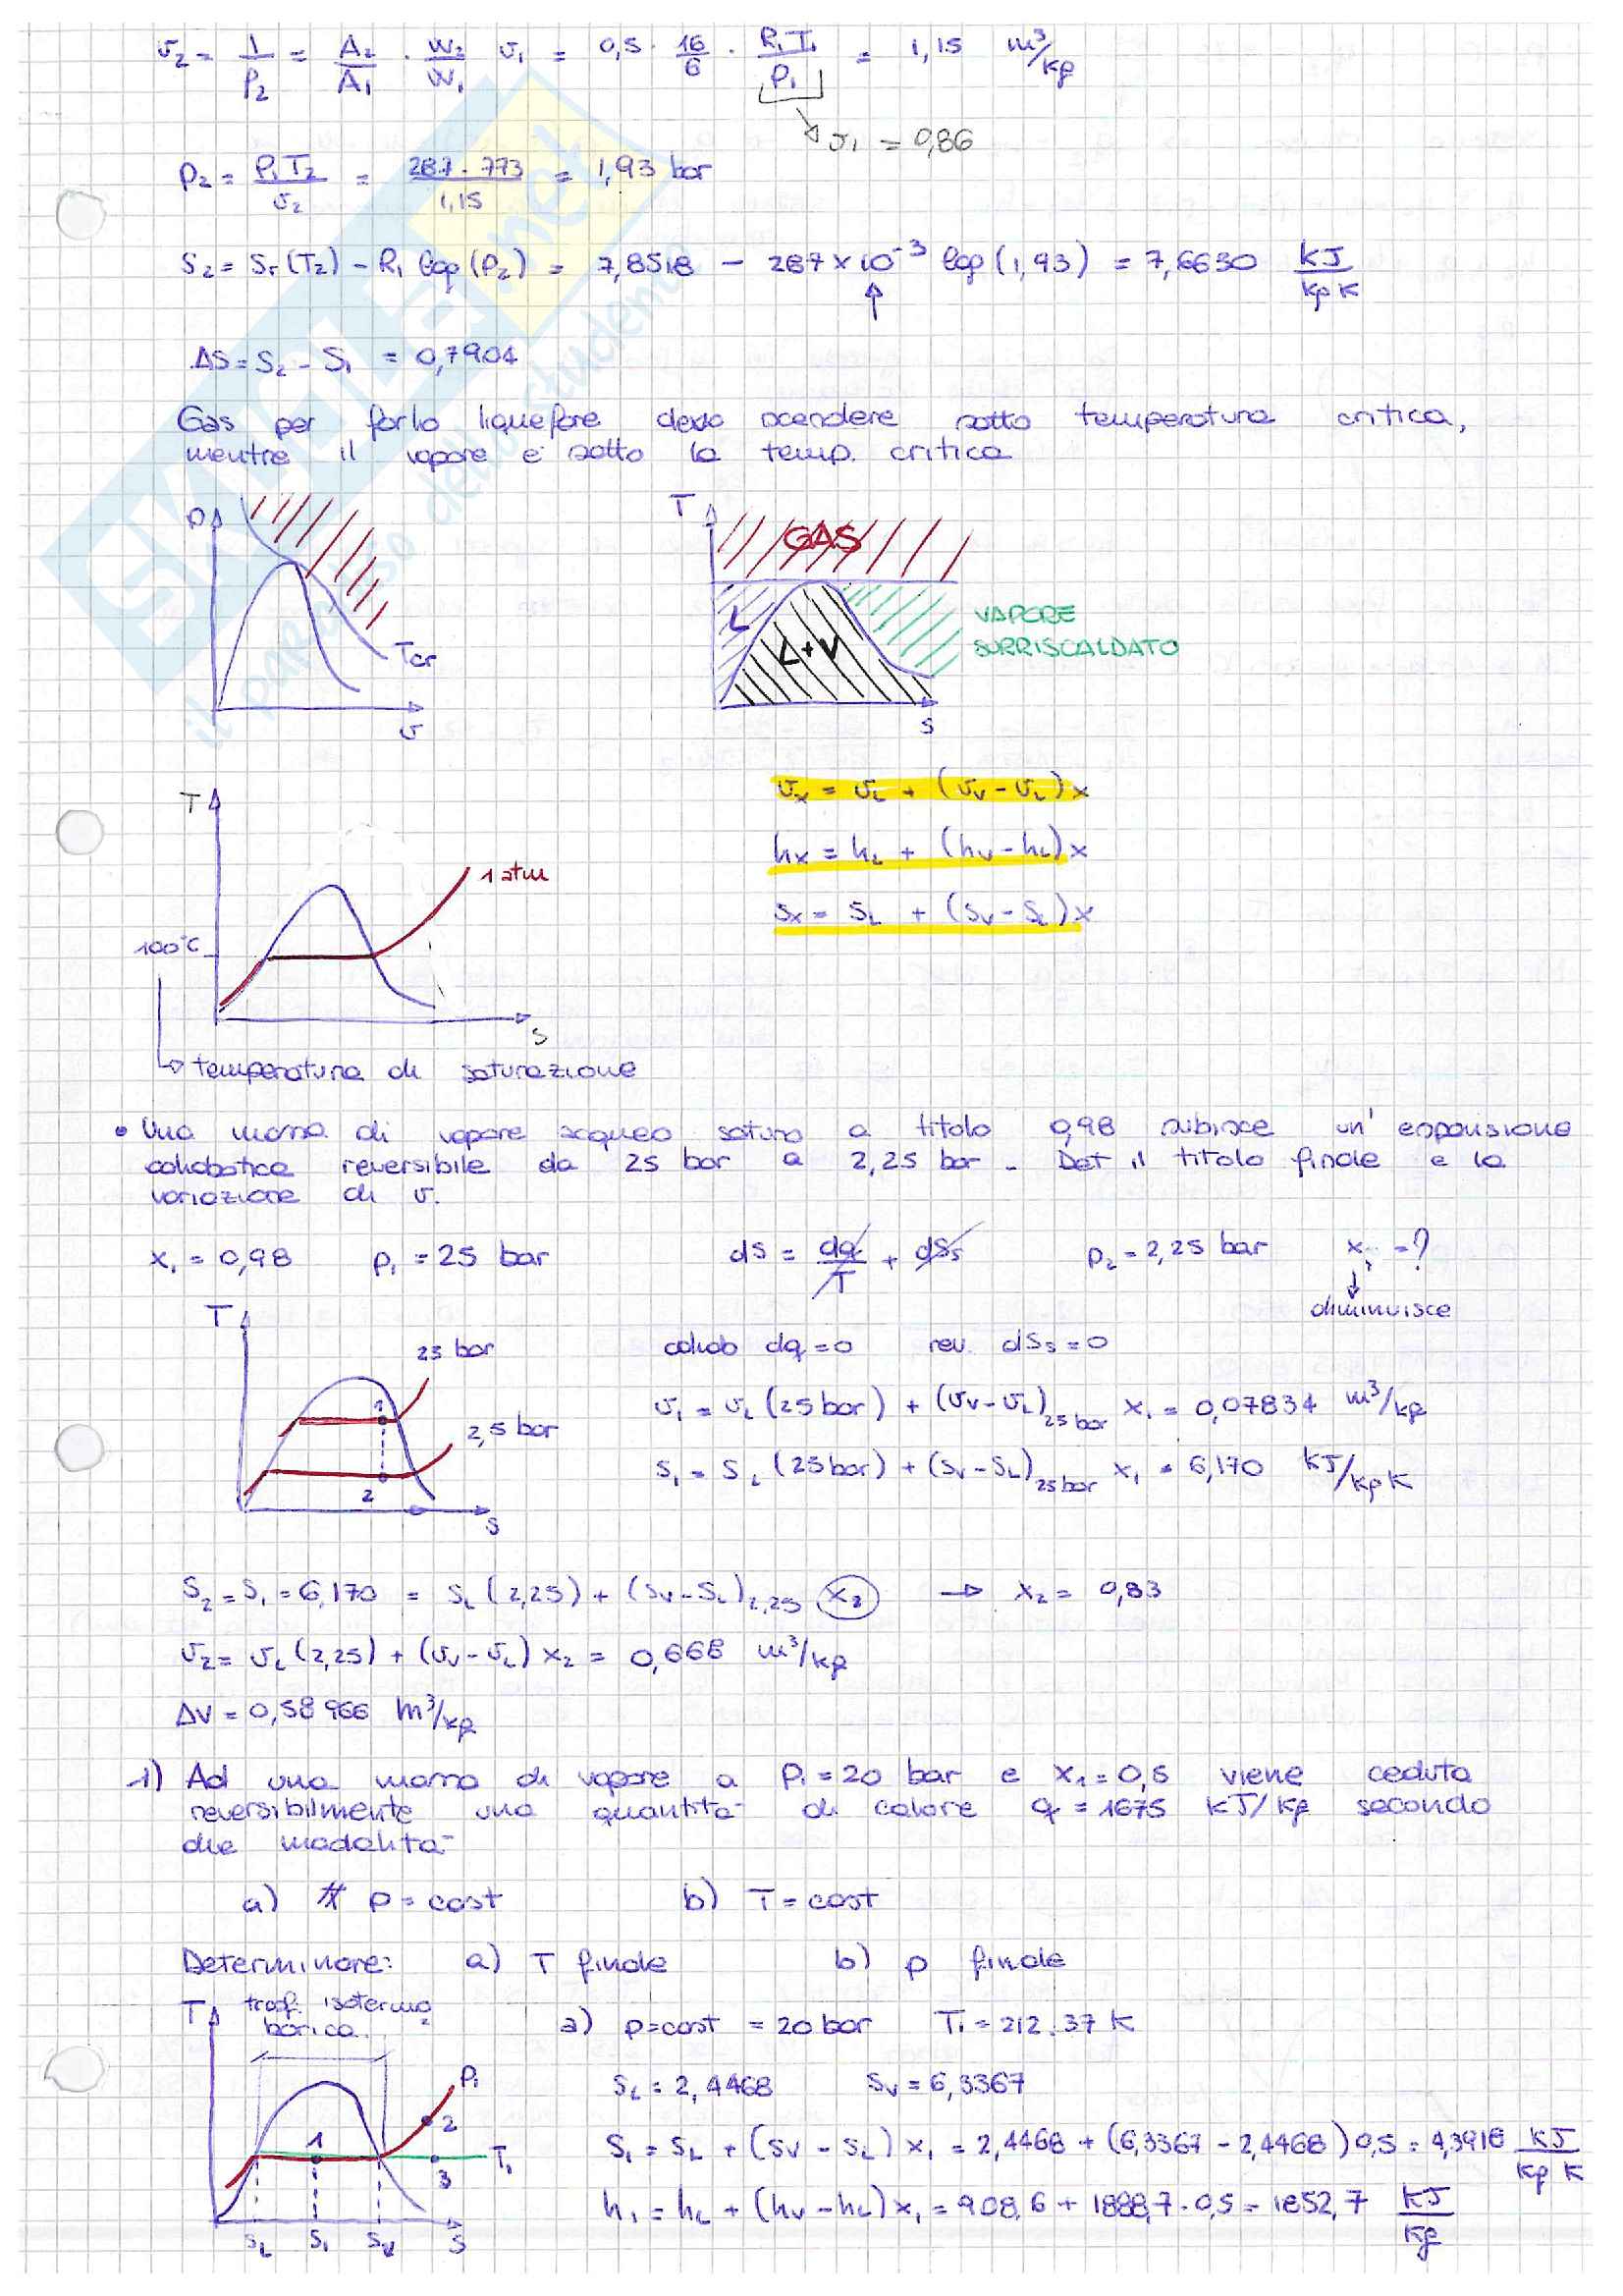 v₂ = 1/ρ₂ = A₂/A₁ · w₂/w₁ v₁ = 0,5 · 16/6 · R₁T₁/P₁ = 1,15 m³/kg
→ v₁ = 0,86
P₂ = R₁T₂/v₂ = 287 · 773/1,15 = 1,93 bar
S₂ = Sr(T₂) - R₁ log(P₂) = 7,8518 - 287 × 10⁻³ log(1,93) = 7,6630 kJ/kg K
ΔS = S₂ - S₁ = 0,7904
Gas per farlo liquefare devo scendere sotto temperatura critica,
mentre il vapore e' sotto la temp. critica
P
Tcr
v
T
GAS
L
L+V
VAPORE
SURRISCALDATO
S
T
1 atm
100°C
S
→ temperatura di saturazione
vx = vL + (vv - vL)x
hx = hL + (hv - hL)x
Sx = SL + (Sv - SL)x
• Una massa di vapore acqueo saturo a titolo 0,98 subisce un' espansione
adiabatica reversibile da 25 bar a 2,25 bar. Det il titolo finale e la
variazione di v.
x₁ = 0,98 p₁ = 25 bar ds = dq/T + dSs p₂ = 2,25 bar x = ?
↓
diminuisce
T
25 bar
1
2,5 bar
2
S
adiab dq = 0 rev. dSs = 0
v₁ = vL (25 bar) + (vv - vL)25 bar x₁ = 0,07834 m³/kg
S₁ = SL (25 bar) + (Sv - SL)25 bar x₁ = 6,170 kJ/kg K
S₂ = S₁ = 6,170 = SL (2,25) + (Sv - SL)2,25 x₂ → x₂ = 0,83
v₂ = vL (2,25) + (vv - vL) x₂ = 0,668 m³/kg
ΔV = 0,58966 m³/kg
1) Ad una massa di vapore a P₁ = 20 bar e x₁ = 0,5 viene ceduta
reversibilmente una quantita' di calore q = 1675 kJ/kg secondo
due modalita'
a) p = cost b) T = cost
Determinare: a) T finale b) p finale
T
trasf. isoterma
barica
P₁
2
1
T₁
3
SL S₁ Sv S
a) p = cost = 20 bar T₁ = 212.37 K
SL = 2,4468 Sv = 6,3367
S₁ = SL + (Sv - SL) x₁ = 2,4468 + (6,3367 - 2,4468) 0,5 = 4,3918 kJ/kg K
h₁ = hL + (hv - hL) x₁ = 908,6 + 1888,7 · 0,5 = 1852,7 kJ/kg